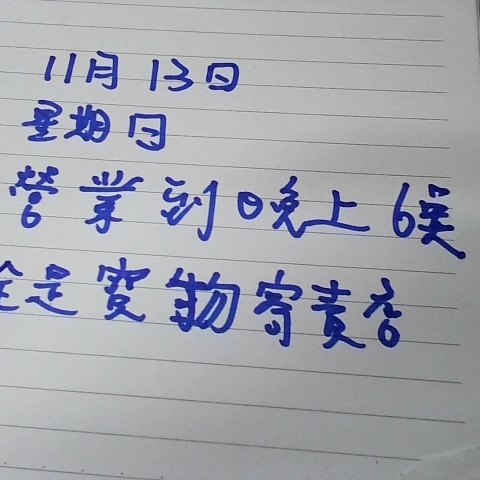 11月13日
星期日
營業到晚上6誤
全是寶物寄責店